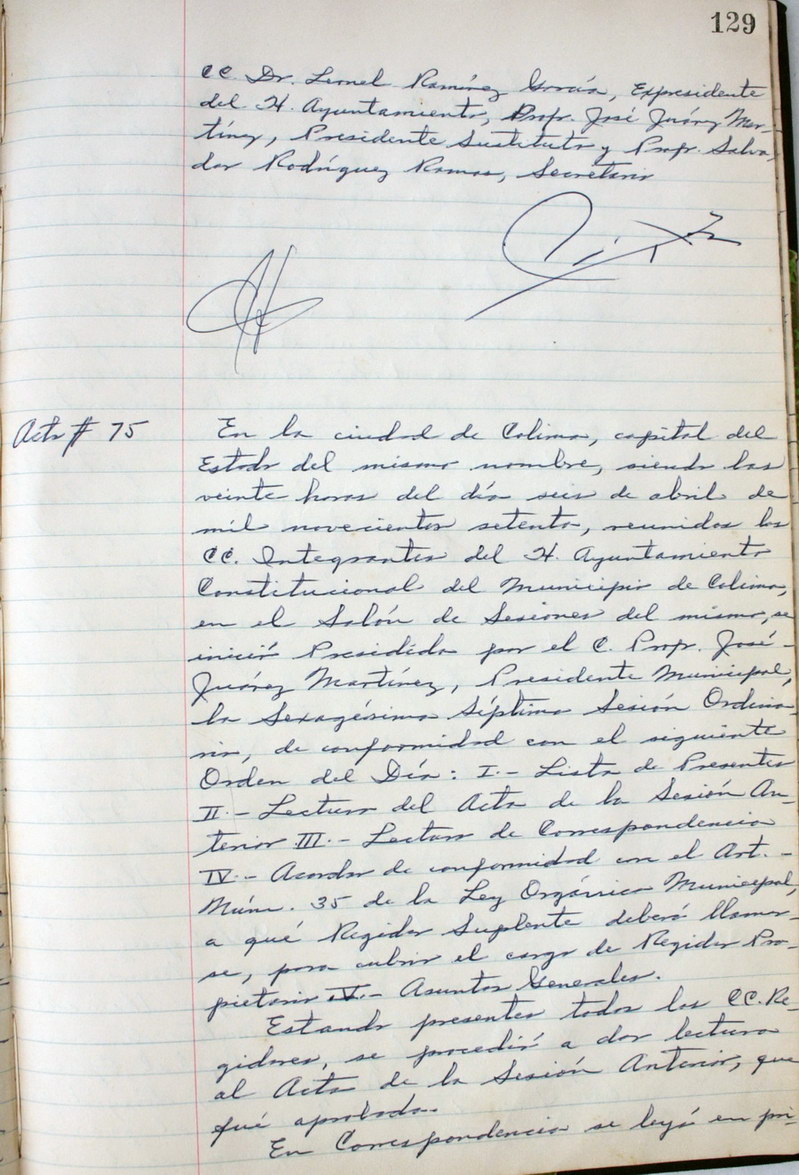 129
CC. Dr. Leonel Ramírez García, Expresidente
del H. Ayuntamiento, Profr. José Juárez Mar-
tínez, Presidente Sustituto y Profr. Salva-
dor Rodríguez Ramos, Secretario
Acta # 75
En la ciudad de Colima, capital del
Estado del mismo nombre, siendo las
veinte horas del día seis de abril de
mil novecientos setenta, reunidos los
CC. Integrantes del H. Ayuntamiento
Constitucional del Municipio de Colima,
en el Salón de Sesiones del mismo, se
inició Presidida por el C. Profr. José-
Juárez Martínez, Presidente Municipal,
la Sexagésima Séptima Sesión Ordina-
ria, de conformidad con el siguiente
Orden del Día: I.- Lista de Presentes
II.- Lectura del Acta de la Sesión An-
terior III.- Lectura de Correspondencia
IV.- Acordar de conformidad con el Art.-
Núm. 35 de la Ley Orgánica Municipal,
a qué Regidor Suplente deberá llamar-
se, para cubrir el cargo de Regidor Pro-
pietario V.- Asuntos Generales.
Estando presentes todos los CC. Re-
gidores, se procedió a dar lectura
al Acta de la Sesión Anterior, que
fué aprobada.
En Correspondencia se leyó en pri-